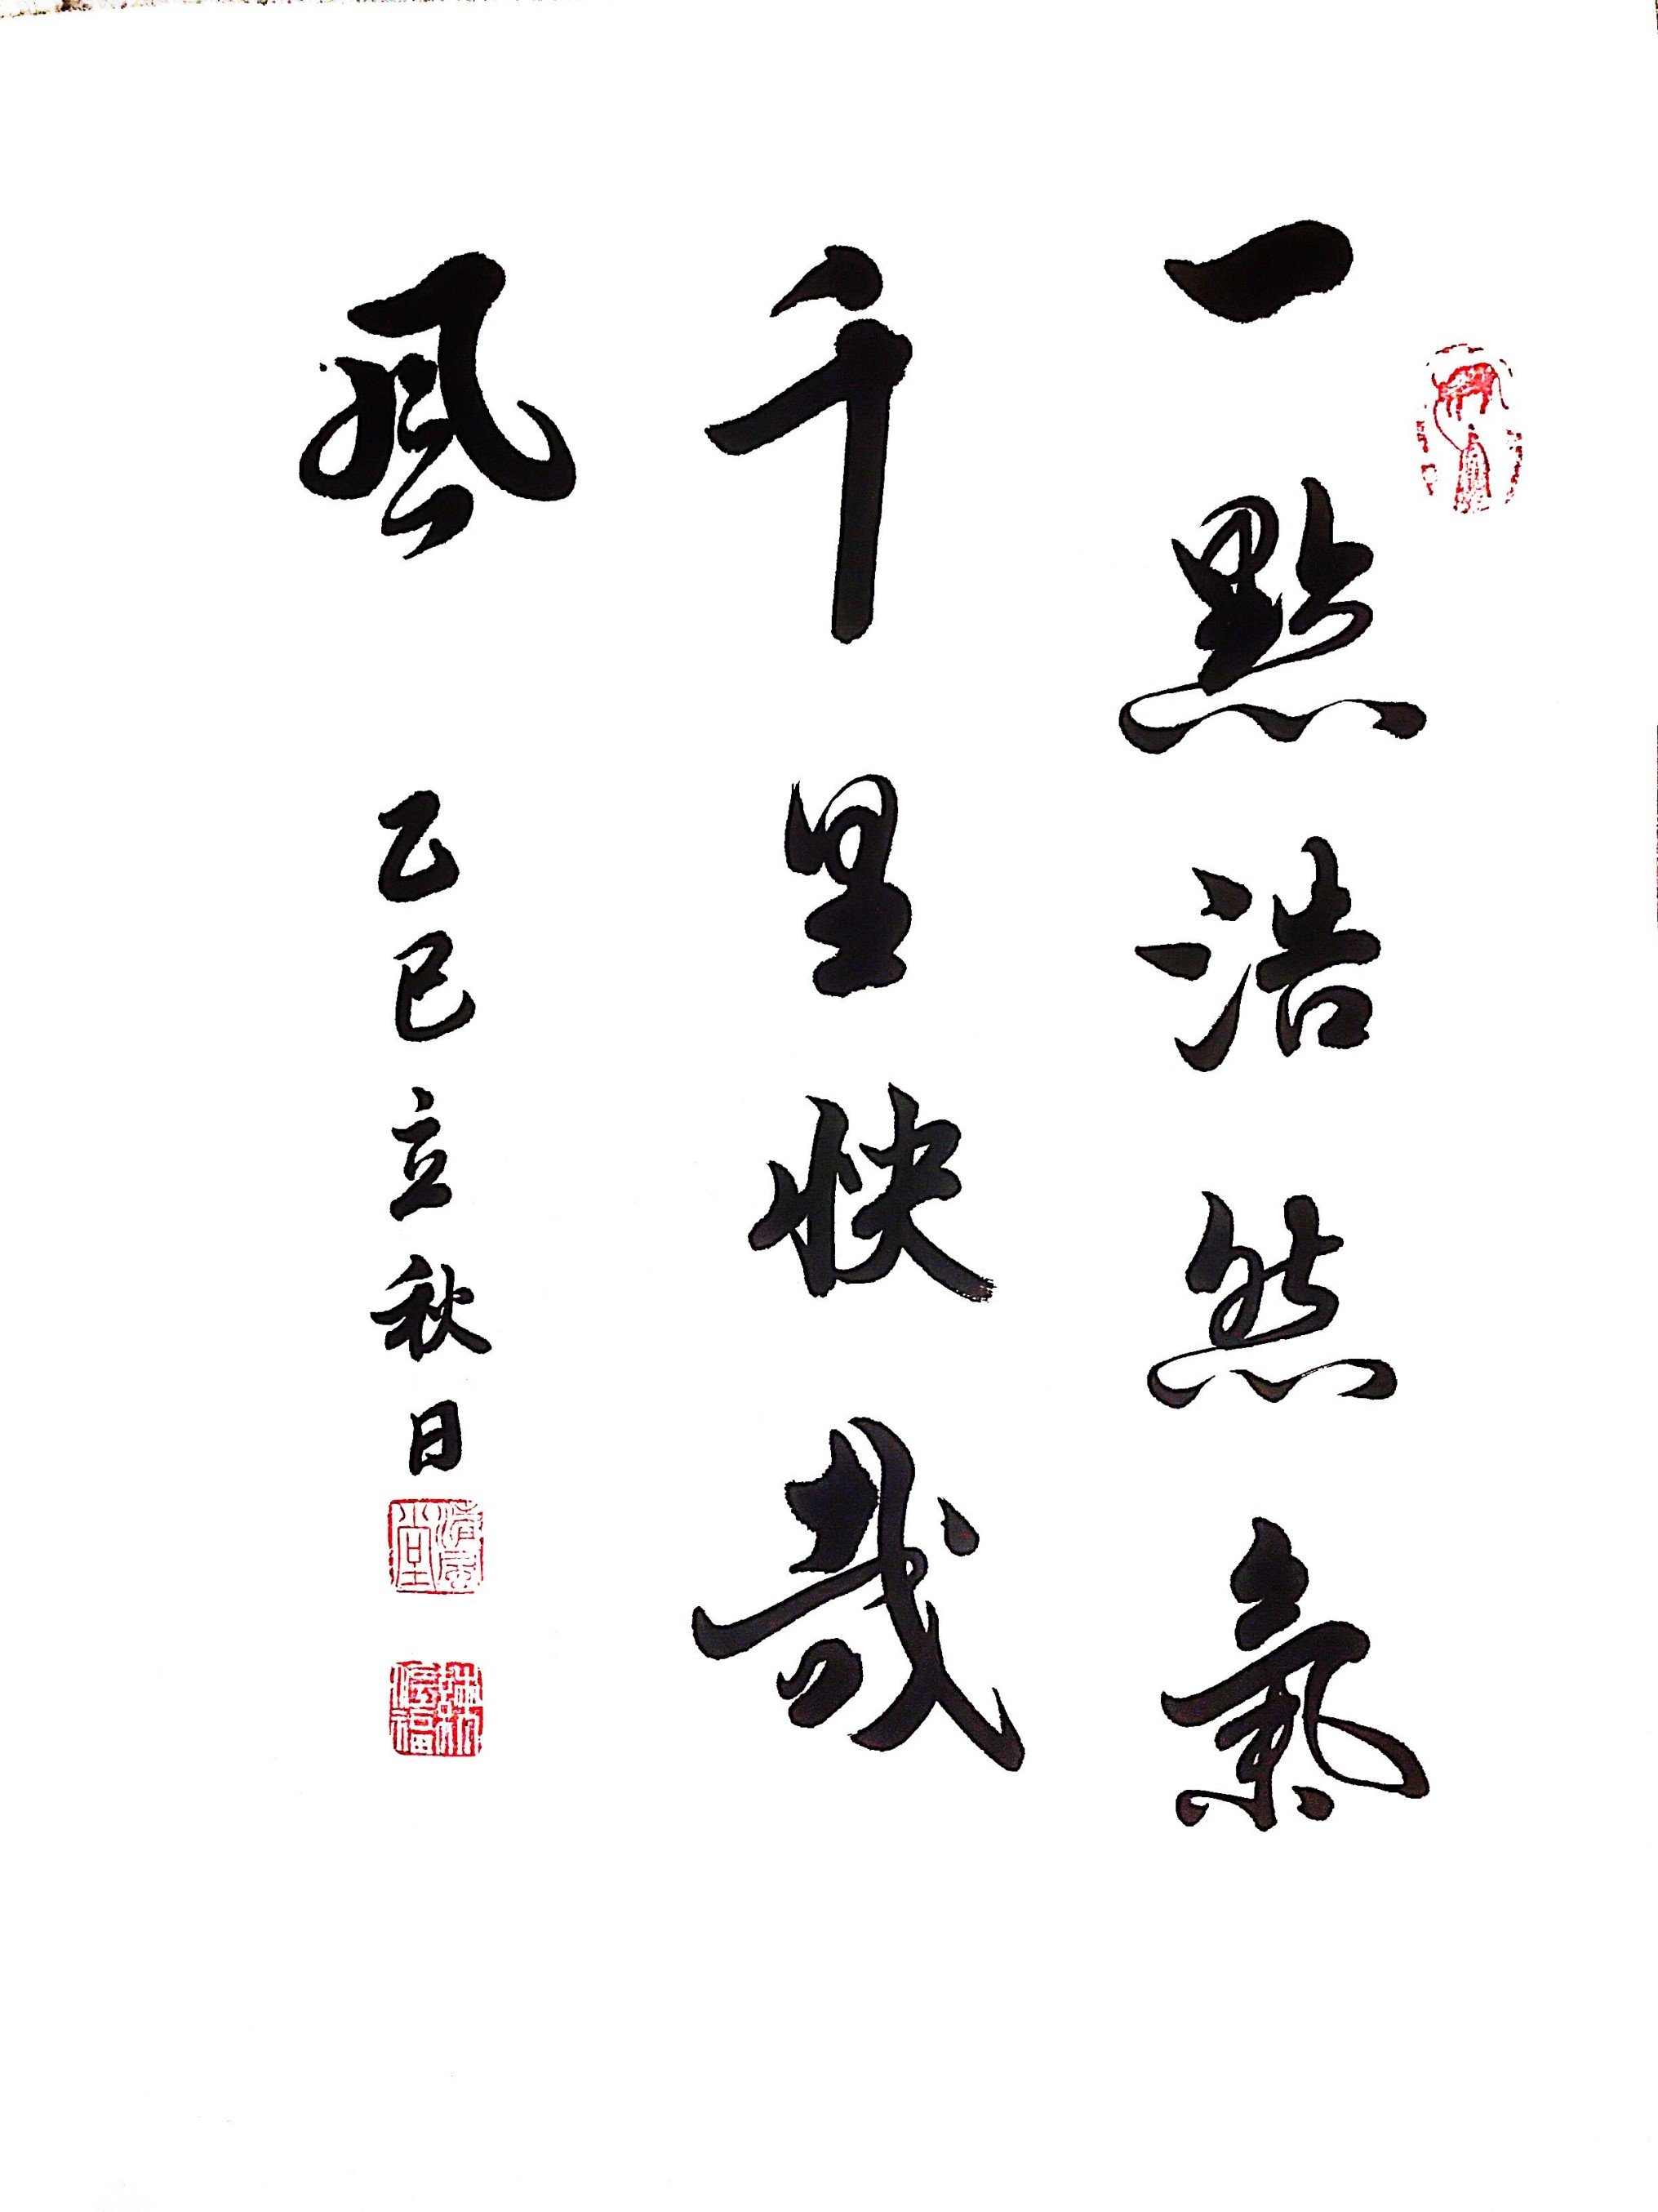 一點浩然氣
千里快哉
風
乙巳立秋日
清風堂